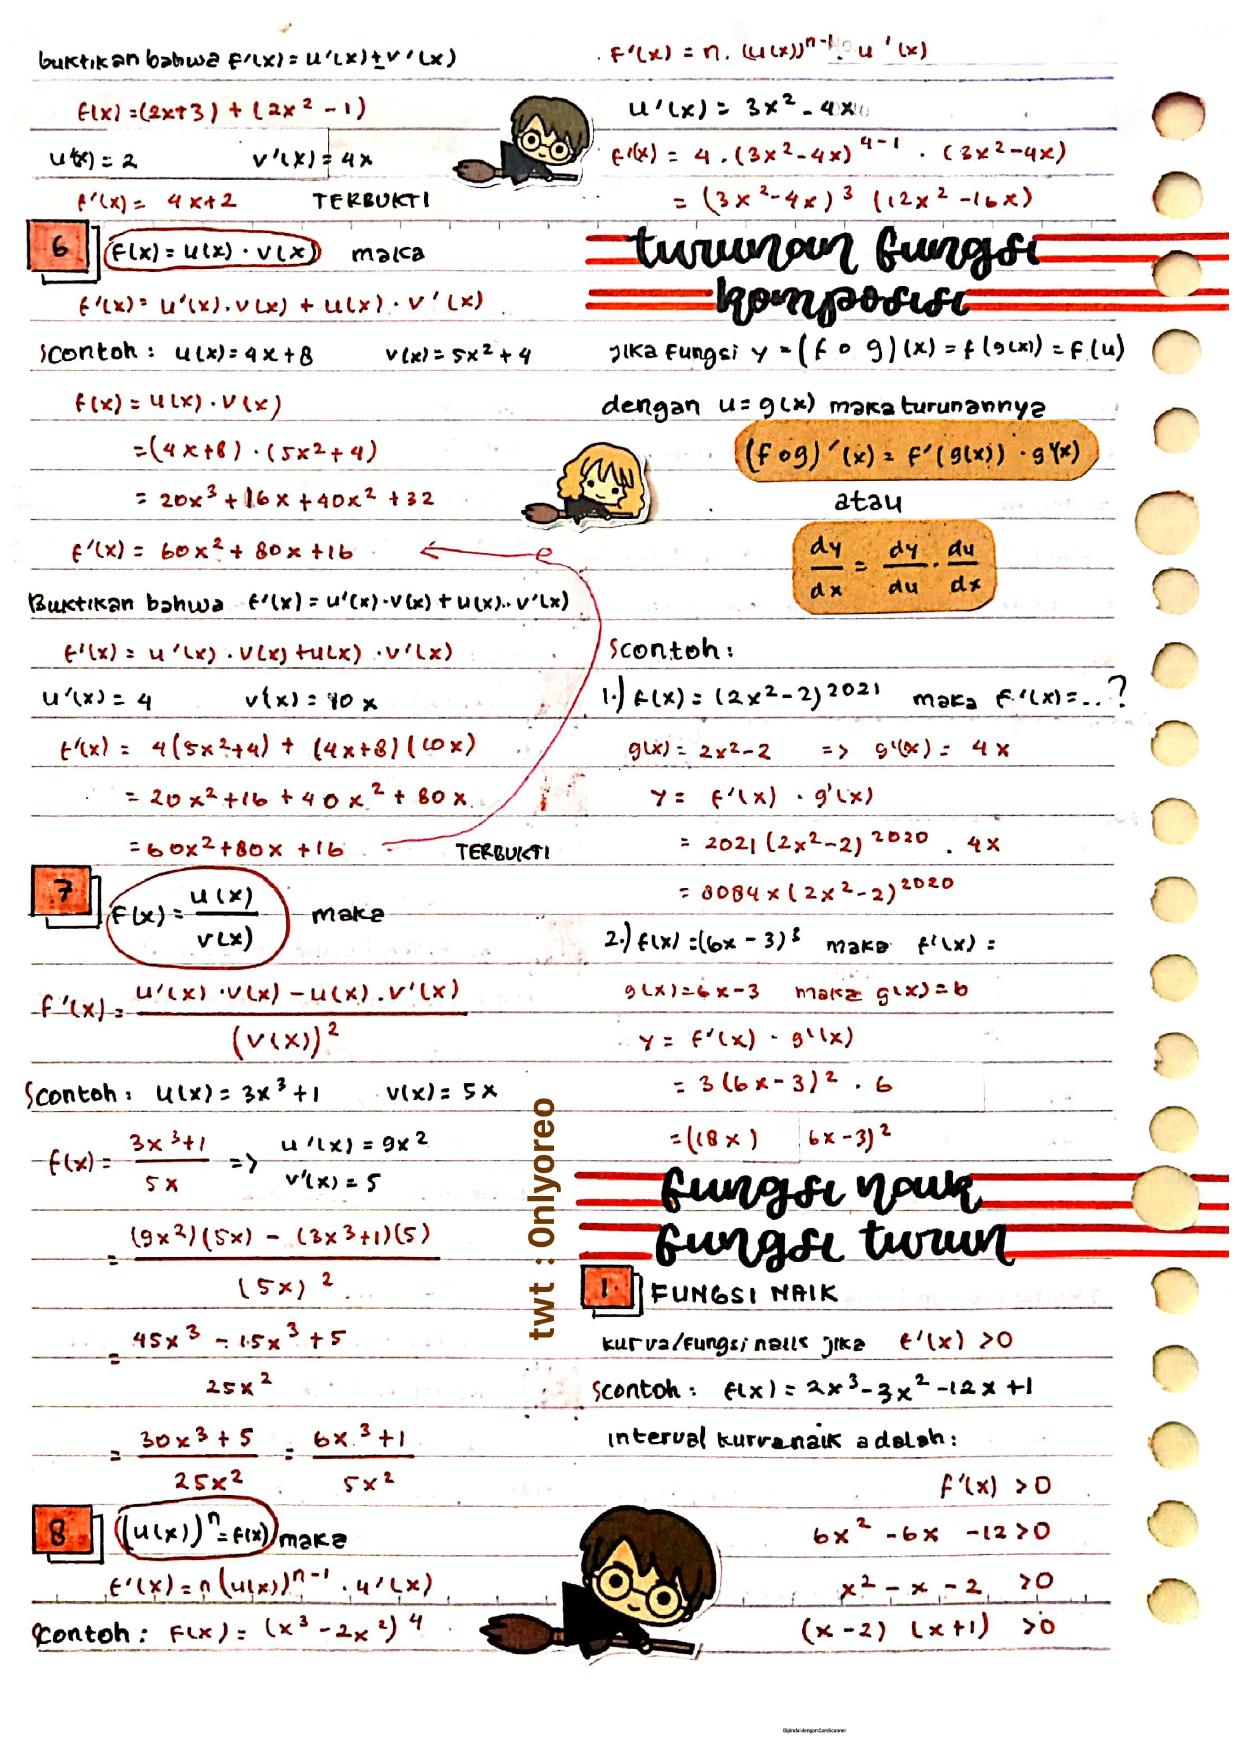 buktikan bahwa f'(x) = u'(x) ± v'(x)
f(x) = (2x+3) + (2x² - 1)
u'(x) = 2 v'(x) = 4x
f'(x) = 4x+2 TERBUKTI
6 f(x) = u(x) · v(x) maka
f'(x) = u'(x) . v(x) + u(x) · v'(x)
Scontoh : u(x) = 4x+8 v(x) = 5x² + 4
f(x) = u(x) · v(x)
= (4x+8) · (5x²+4)
= 20x³ + 16x + 40x² + 32
f'(x) = 60x² + 80x + 16
Buktikan bahwa f'(x) = u'(x)·v(x) + u(x)·v'(x)
f'(x) = u'(x) . v(x) + u(x) · v'(x)
u'(x) = 4 v'(x) = 10x
f'(x) = 4(5x²+4) + (4x+8)(10x)
= 20x² + 16 + 40x² + 80x
= 60x² + 80x + 16 TERBUKTI
7 f(x) = u(x)/v(x) maka
f'(x) = u'(x) · v(x) - u(x) . v'(x) / (v(x))²
Scontoh : u(x) = 3x³ + 1 v(x) = 5x
f(x) = 3x³+1 / 5x => u'(x) = 9x²
v'(x) = 5
= (9x²)(5x) - (3x³+1)(5) / (5x)²
= 45x³ - 15x³ + 5 / 25x²
= 30x³ + 5 / 25x² = 6x³ + 1 / 5x²
8 (u(x))ⁿ = f(x) maka
f'(x) = n(u(x))ⁿ⁻¹ . u'(x)
Scontoh : f(x) = (x³ - 2x²)⁴
twt : Onlyoreo
f'(x) = n. (u(x))ⁿ⁻¹ . u'(x)
u'(x) = 3x² - 4x
f'(x) = 4 . (3x²-4x)⁴⁻¹ . (3x²-4x)
= (3x²-4x)³ (12x² - 16x)
turunan fungsi
komposisi
jika fungsi y = (f o g)(x) = f(g(x)) = f(u)
dengan u = g(x) maka turunannya
(f o g)'(x) = f'(g(x)) · g'(x)
atau
dy/dx = dy/du . du/dx
Scontoh :
1.) f(x) = (2x²-2)²⁰²¹ maka f'(x) = ...?
g(x) = 2x²-2 => g'(x) = 4x
y = f'(x) . g'(x)
= 2021 (2x²-2)²⁰²⁰ . 4x
= 8084x (2x²-2)²⁰²⁰
2.) f(x) = (6x - 3)³ maka f'(x) =
g(x) = 6x-3 maka g(x) = 6
y = f'(x) . g'(x)
= 3(6x-3)² . 6
= (18x) 6x-3)²
fungsi naik
fungsi turun
1. FUNGSI NAIK
kurva/fungsi naik jika f'(x) > 0
Scontoh : f(x) = 2x³ - 3x² - 12x + 1
interval kurva naik adalah :
f'(x) > 0
6x² - 6x - 12 > 0
x² - x - 2 > 0
(x-2) (x+1) > 0
Dipindai dengan CamScanner